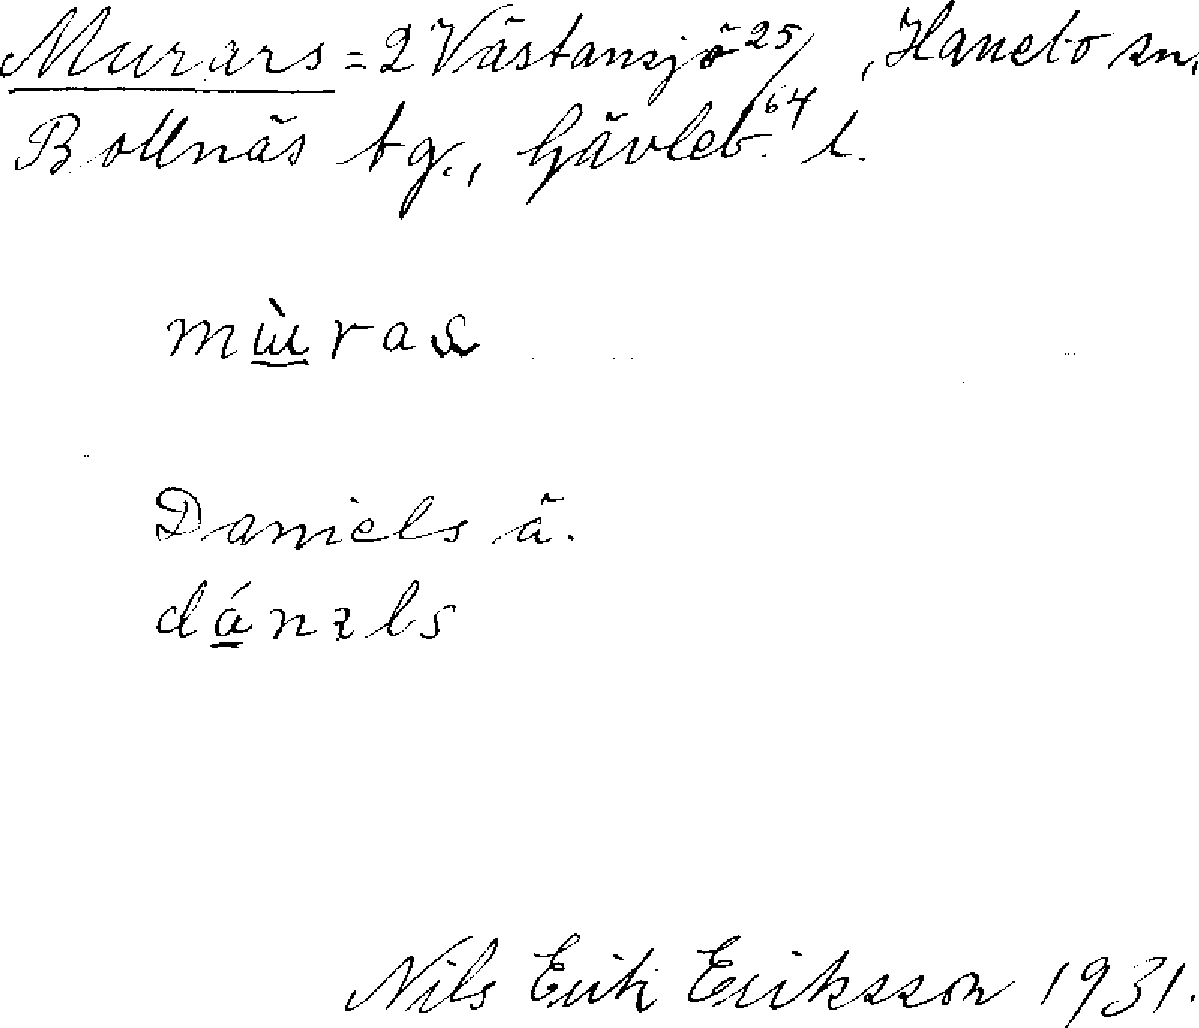 Murars = 2 Västansjö 25/64, Hanebo sn,
Bollnäs tg., Gävleb. l.
mɯ̀ras
Daniels ä.
dánɪls
Nils Erik Eriksson 1931.